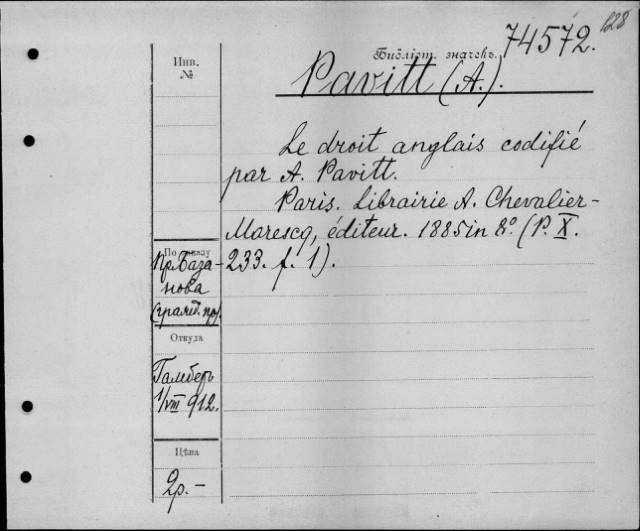 128
74572.
Библіот. значекъ.
Pavitt (A.).
Le droit anglais codifié
par A. Pavitt.
Paris. Librairie A. Chevalier-
Marescq, éditeur. 1885 in 8º. (P. X.
233. f. 1).
Инв.
№
По заказу
Пр. База-
нова
(гражд. пр.)
Откуда
Гамберъ
1/VIII 912.
Цѣна
2р. –